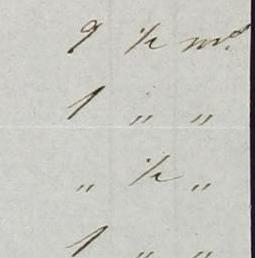 9 ½ m/d
1 " "
" ½ "
1 " "